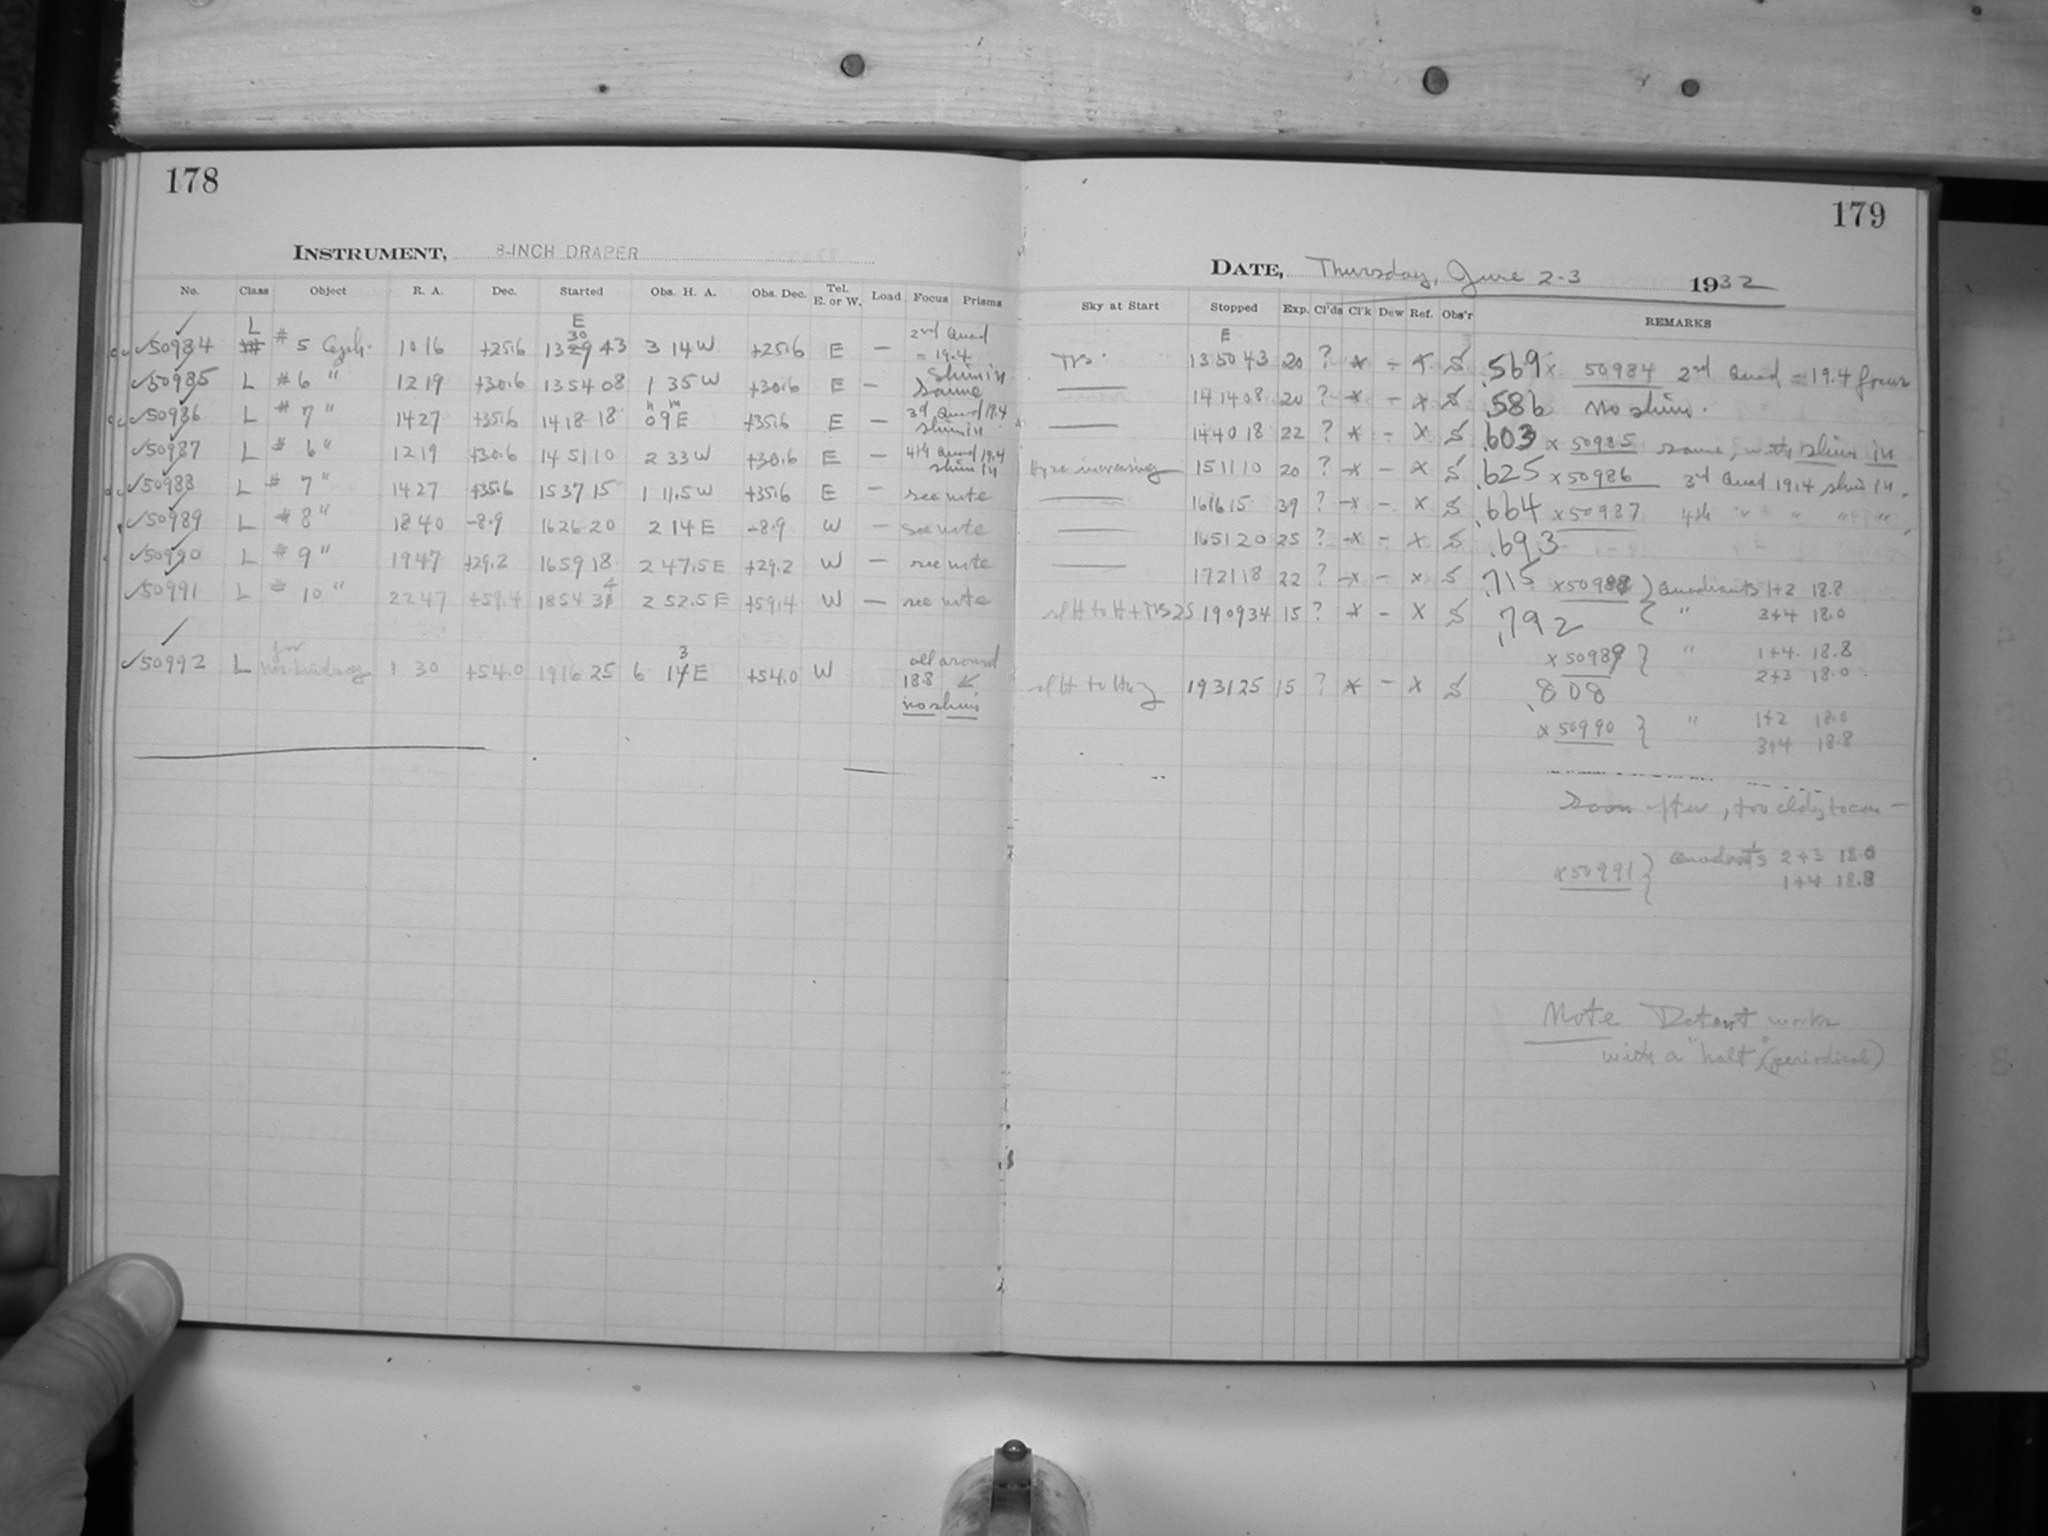 178
INSTRUMENT, 8-INCH DRAPER
No. Class Object R. A. Dec. Started Obs. H. A. Obs. Dec. Tel. E. or W. Load Focus Prisms
50984 L # 5 Ceph. 10 16 +25.6 13 30 43 3 14 W +25.6 E — 2nd Quad = 19.4 Shim in
50985 L # 6 " 12 19 +30.6 13 54 08 1 35 W +30.6 E — same
50986 L # 7 " 14 27 +35.6 14 18 18 0h 9m E +35.6 E — 3d Quad 19.4 shim in
50987 L # 6 " 12 19 +30.6 14 51 10 2 33 W +30.6 E — 4th Quad 19.4 shim in
50988 L # 7 " 14 27 +35.6 15 37 15 1 11.5 W +35.6 E — see note
50989 L # 8 " 18 40 -8.9 16 26 20 2 14 E -8.9 W — see note
50990 L # 9 " 19 47 +29.2 16 59 18 2 47.5 E +29.2 W — see note
50991 L # 10 " 22 47 +59.4 18 54 34 2 52.5 E +59.4 W — see note
50992 L for 1 30 +54.0 19 16 25 6 13 E +54.0 W all around 18.8 no shims
179
DATE, Thursday, June 2-3 1932
Sky at Start Stopped Exp. Cl'ds Cl'k Dew Ref. Obs'r REMARKS
E
13 50 43 20 ? x - x S .569 x 50984 2nd Quad = 19.4 focus
—— 14 14 08 20 ? x - x S .586 no shim.
—— 14 40 18 22 ? x - x S .603 x 50985 same, with shim in
Haze increasing 15 11 10 20 ? x - x S .625 x 50986 3d Quad 19.4 shim in.
—— 16 16 15 39 ? x - x S .664 x 50987 4th " " " "
—— 16 51 20 25 ? x - x S .693
—— 17 21 18 22 ? x - x S .715 x 50988 } Quadrants 1+2 18.8
19 09 34 15 ? x - x S .792 " 3+4 18.0
x 50989 } " 1+4 18.8
2+3 18.0
19 31 25 15 ? x - x S .808
x 50990 } " 1+2 18.0
3+4 18.8
soon after, too cldy to
x 50991 } Quadrants 2+3 18.0
1+4 18.8
Note Detent works
with a "halt" (periodical)